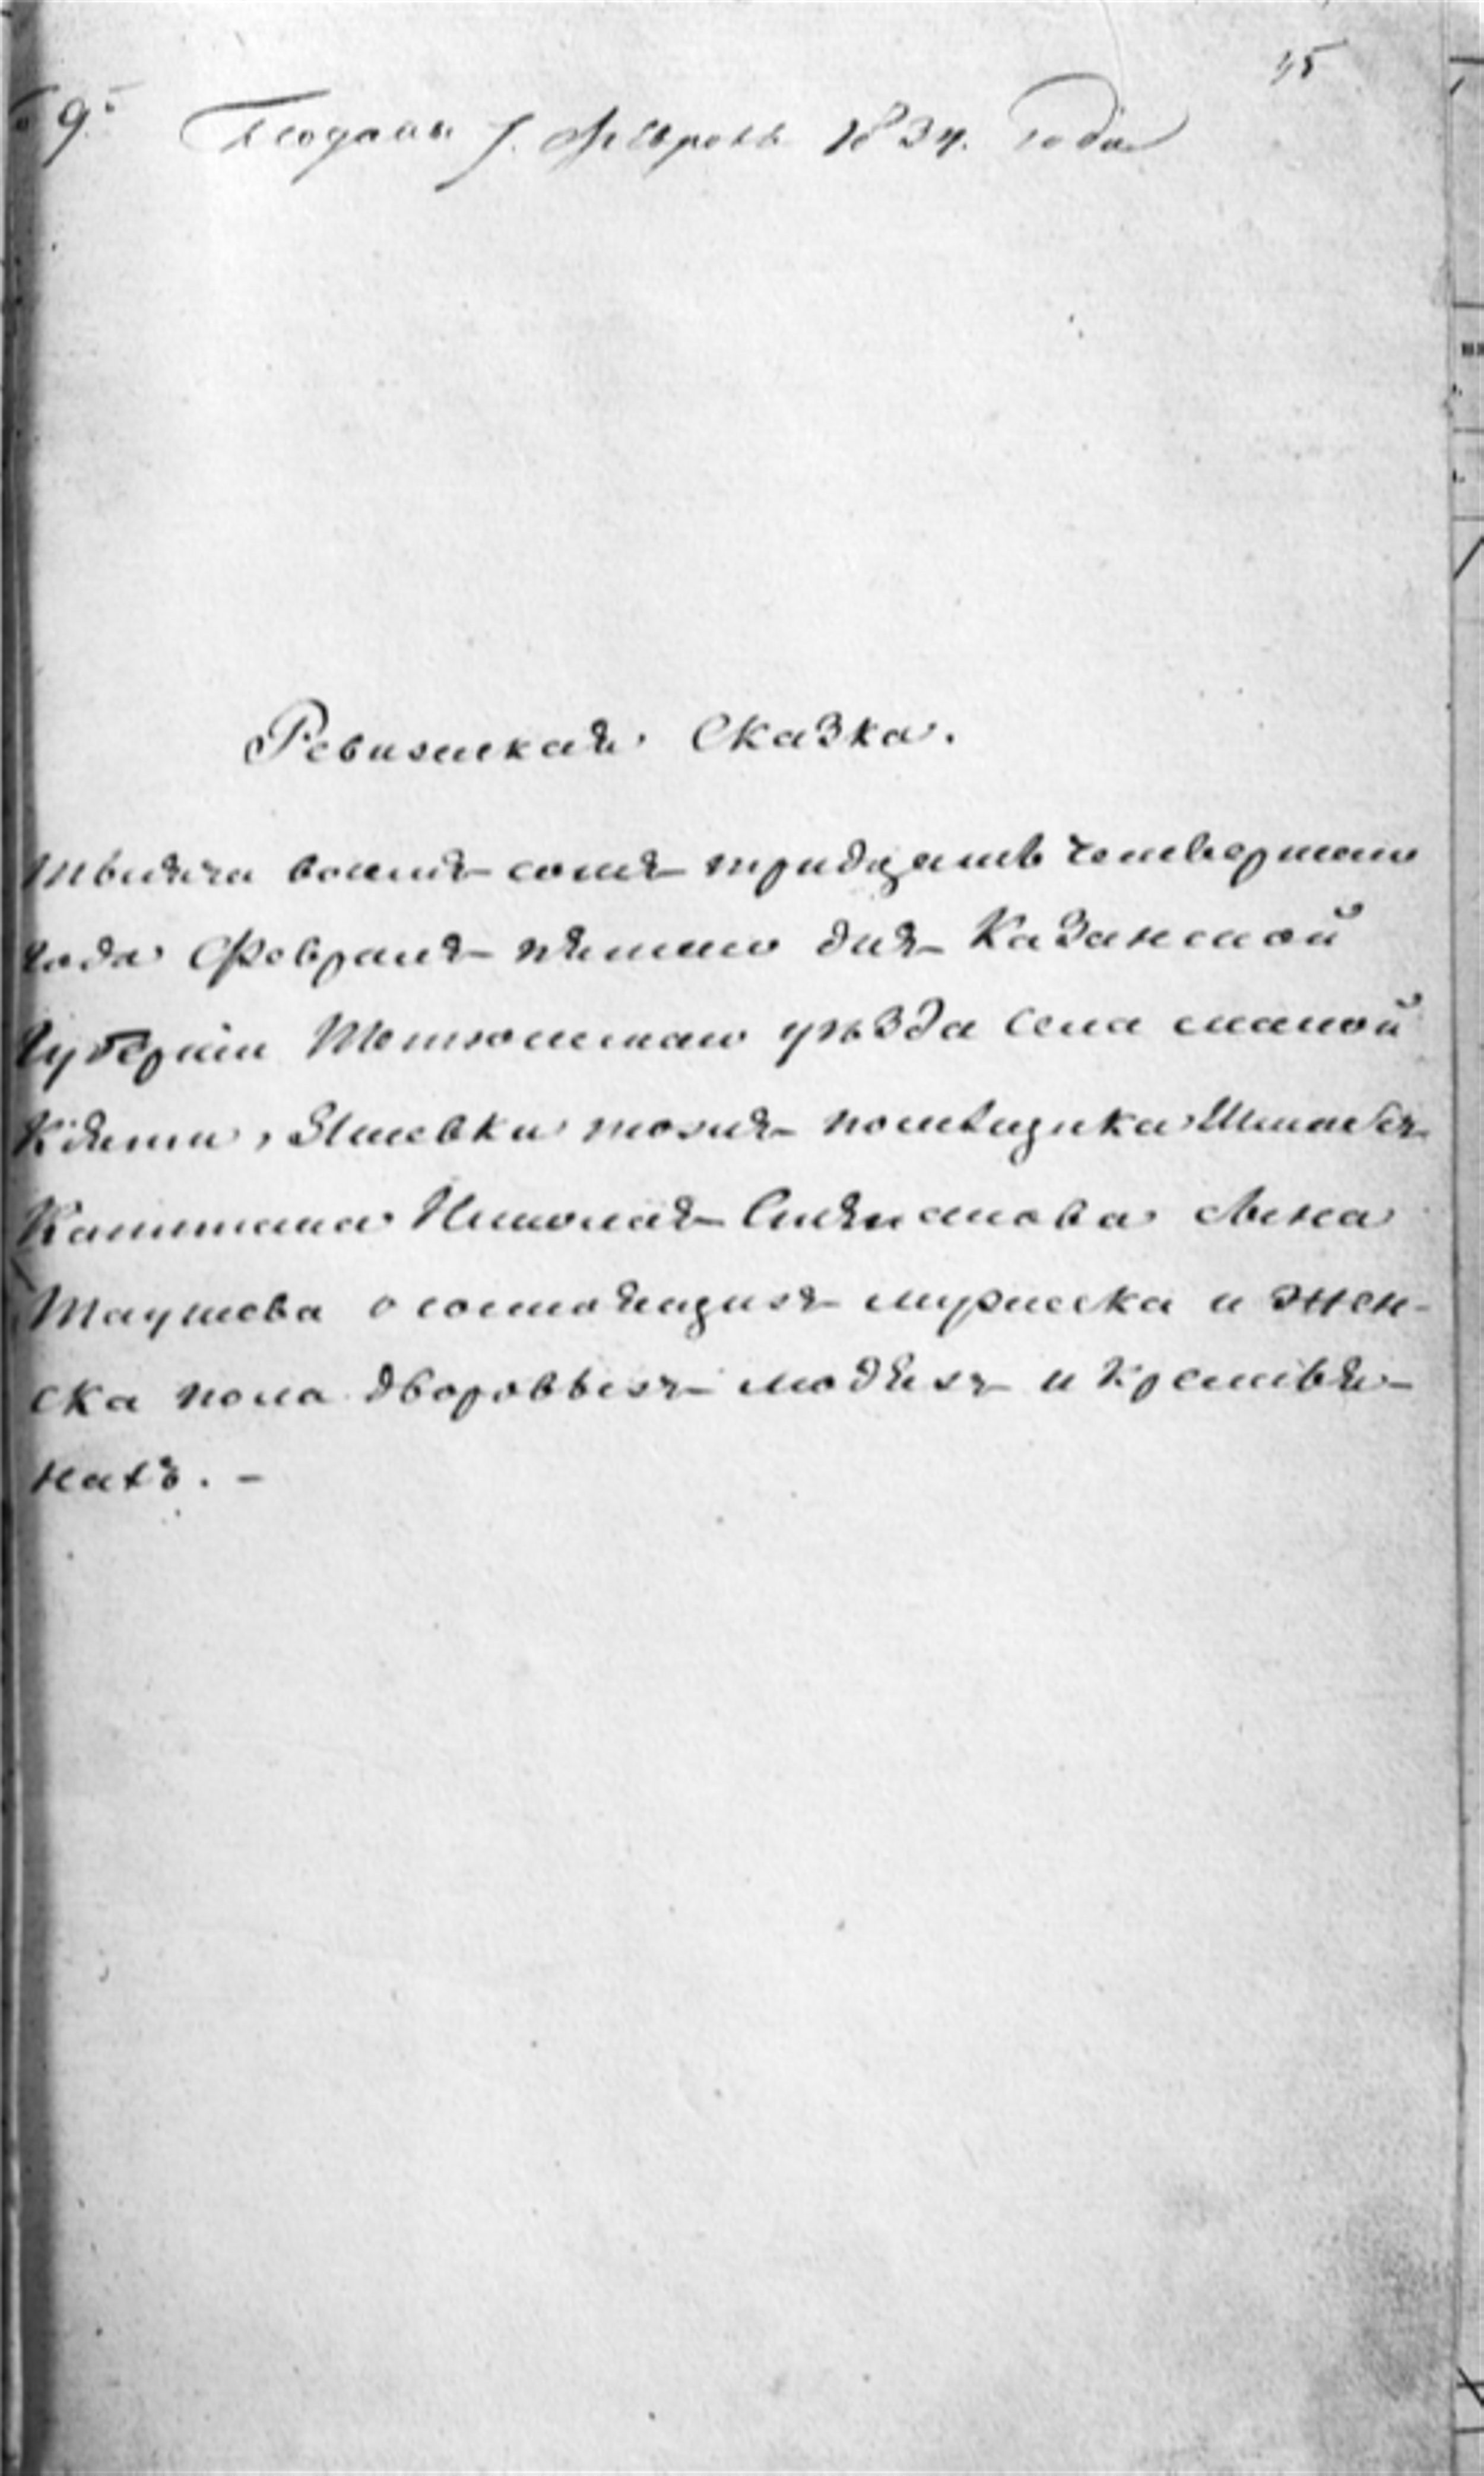 45
9. Подана 7. Февраля 1834. года
Ревизская Сказка.
Тысяча восемь сотъ тридцать четвертаго
года Февраля пятаго дня Казанской
Губернiи Тетюшскаго уѣзда села малой
Кляри, тожъ помѣщика Штабсъ
Капитана Николая сына
о состоящихъ мужеска и жен-
ска пола дворовыхъ людяхъ и крестья-
нахъ. -